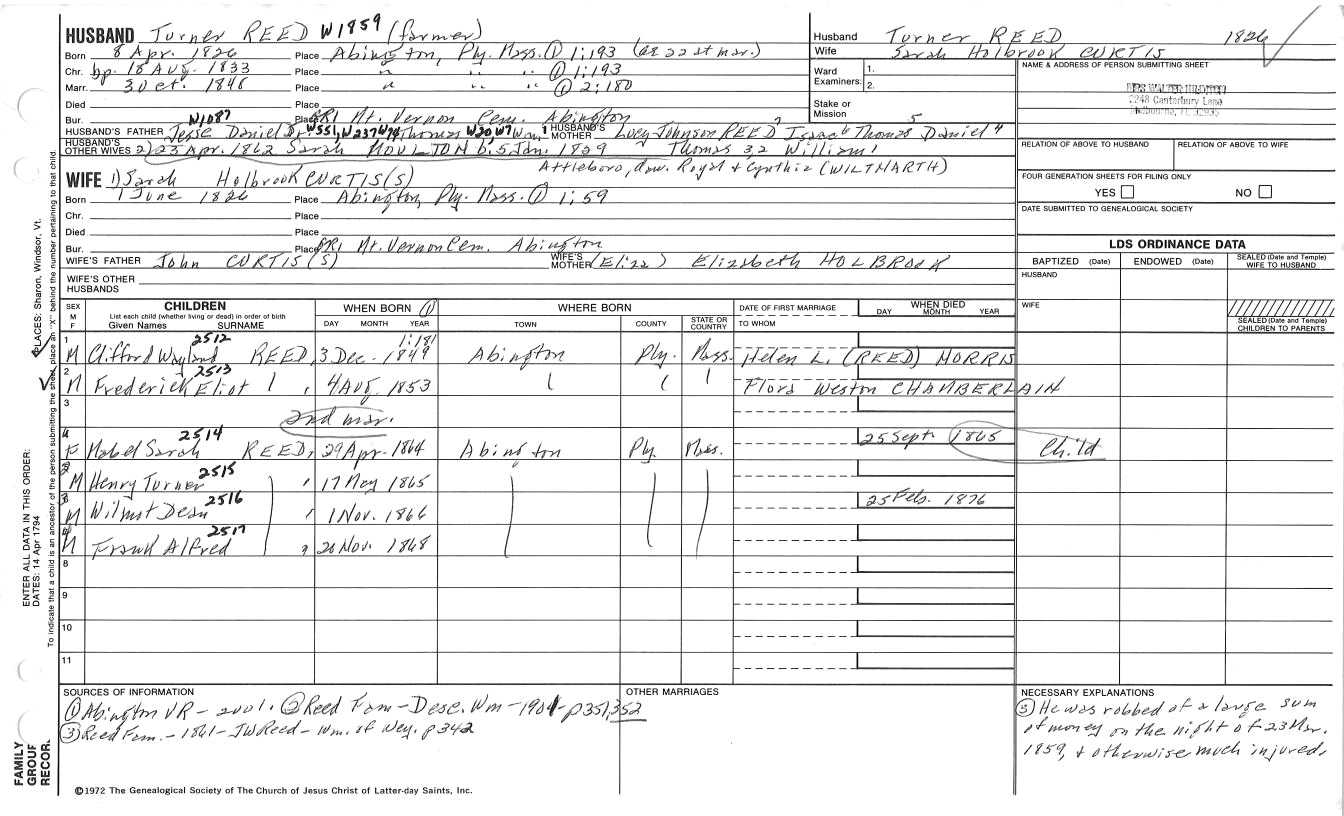 HUSBAND Turner REED W1859 (farmer)
Born 8 Apr. 1826 Place Abington, Ply. Mass. ① 1:193 (at 22 at mar.)
Chr. bp. 18 Aug. 1833 Place " " " ① 1:193
Marr. 30 Oct. 1848 Place " " " ① 2:180
Died Place
Bur. Place GR1 Mt. Vernon Cem. Abington
W1087
HUSBAND'S FATHER Jesse Daniel W551, W237 W74 Thomas W20, W7 Wm. 1 HUSBAND'S MOTHER Lucy Johnson REED 7 Isaac 6 Thomas 5 Daniel 4
HUSBAND'S OTHER WIVES 2) 23 Apr. 1862 Sarah MOULTON b. 5 Jan. 1839 Thomas 3,2 William 1
Attleboro, dau. Royal & Cynthia (WILMARTH)
WIFE 1) Sarah Holbrook CURTIS(S)
Born 1 June 1826 Place Abington, Ply. Mass. ① 1:59
Chr. Place
Died Place
Bur. Place GR1 Mt. Vernon Cem. Abington
WIFE'S FATHER John CURTIS(S) WIFE'S MOTHER (Eliza) Elizabeth HOLBROOK
WIFE'S OTHER HUSBANDS
Husband Turner REED 1826
Wife Sarah Holbrook CURTIS
Ward Examiners: 1.
2.
Stake or Mission
NAME & ADDRESS OF PERSON SUBMITTING SHEET
2248 Canterbury Lane
Melbourne, FL 32935
RELATION OF ABOVE TO HUSBAND RELATION OF ABOVE TO WIFE
FOUR GENERATION SHEETS FOR FILING ONLY
YES NO
DATE SUBMITTED TO GENEALOGICAL SOCIETY
LDS ORDINANCE DATA
BAPTIZED (Date) ENDOWED (Date) SEALED (Date and Temple) WIFE TO HUSBAND
HUSBAND
WIFE
SEALED (Date and Temple) CHILDREN TO PARENTS
SEX M F CHILDREN List each child (whether living or dead) in order of birth Given Names SURNAME WHEN BORN ① DAY MONTH YEAR WHERE BORN TOWN COUNTY STATE OR COUNTRY DATE OF FIRST MARRIAGE TO WHOM WHEN DIED DAY MONTH YEAR
2512 1:181
1 M Clifford Wayland REED, 3 Dec. 1849 Abington Ply. Mass. Helen L. (REED) MORRIS
2513
2 M Frederick Eliot , 4 Aug. 1853 Flora Weston CHAMBERLAIN
3 2nd mar.
2514 25 Sept. 1865 Child
F Mabel Sarah REED, 29 Apr. 1864 Abington Ply. Mass.
2515
M Henry Turner , 17 May 1865
2516 25 Feb. 1876
M Wilmot Dean , 1 Nov. 1866
2517
M Frank Alfred , 20 Nov. 1868
8
9
10
11
SOURCES OF INFORMATION
① Abington VR - 2001. ② Reed Fam - Desc. Wm - 1901 - p351,352
③ Reed Fam. - 1861 - JWReed - Wm. of Wey. p342
OTHER MARRIAGES
NECESSARY EXPLANATIONS
③ He was robbed of a large sum
of money on the night of 23 Mar.
1859, & otherwise much injured.
©1972 The Genealogical Society of The Church of Jesus Christ of Latter-day Saints, Inc.
PLACES: Sharon, Windsor, Vt.
ENTER ALL DATA IN THIS ORDER:
DATES: 14 Apr 1794
To indicate that a child is an ancestor of the person submitting the sheet, place an "X" behind the number pertaining to that child.
FAMILY
GROUP
RECOR.